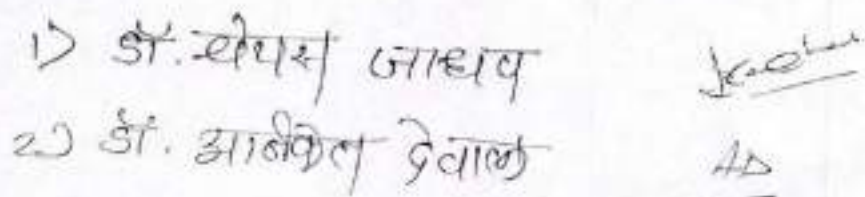 १) डॉ. श्रेयस जाधव
२) डॉ. अनिकेत देवाळे AD